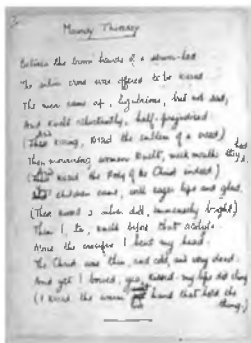 Maundy Thursday
Between the brown hands of a server-lad
The silver cross was offered to be kissed.
The men came up, lugubrious, but not sad,
And knelt reluctantly, half-prejudiced.
(And kissing, kissed the emblem of a creed.)
Then mourning women knelt; meek mouths they had,
(And kissed the Body of the Christ indeed.)
And children came, with eager lips and glad.
(These kissed a silver doll, immensely bright.)
Then I, too, knelt before that acolyte.
Above the crucifix I bent my head:
The Christ was thin, and cold, and very dead:
And yet I bowed, yea, kissed - my lips did cling
(I kissed the warm live hand that held the
thing.)